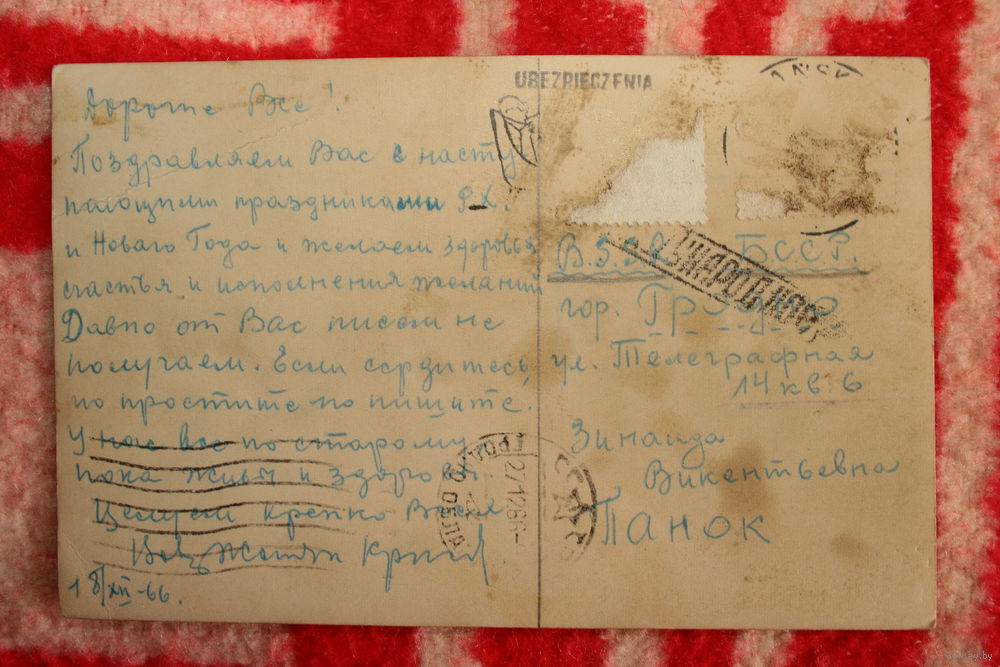 Дорогие Все!
Поздравляем Вас с насту
пающими праздниками Р.Х.
и Новаго Года и желаем здоровья
счастья и исполнения желаний
Давно от Вас писем не
получаем. Если сердитесь,
то простите но пишите.
У нас все по старому
пока живы и здоровы.
Целуем крепко Всех
18/XII-66.
UBEZPIECZENIA
БССР.
гор. Гродно
ул. Телеграфная
14 кв. 6
Зинаида
Викентьевна
Панок